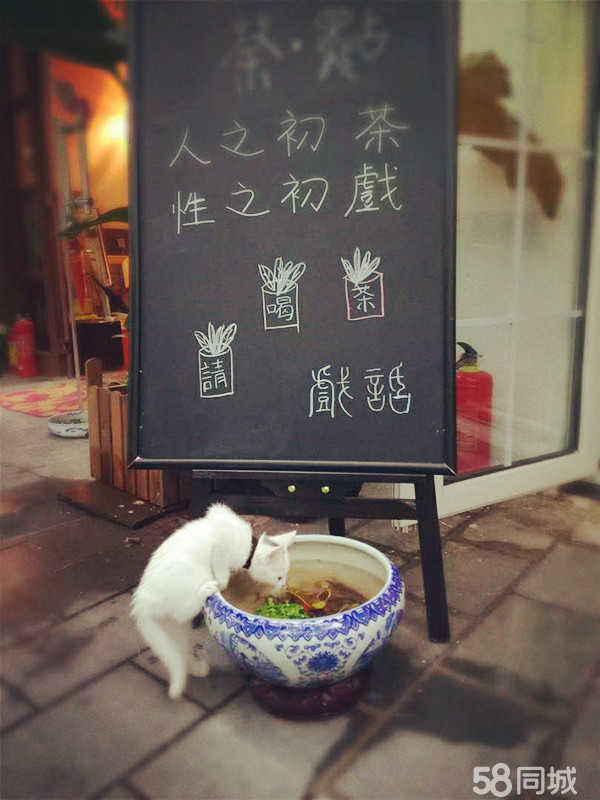 茶·點
人之初 茶
性之初 戲
請 喝 茶
戲話
58同城